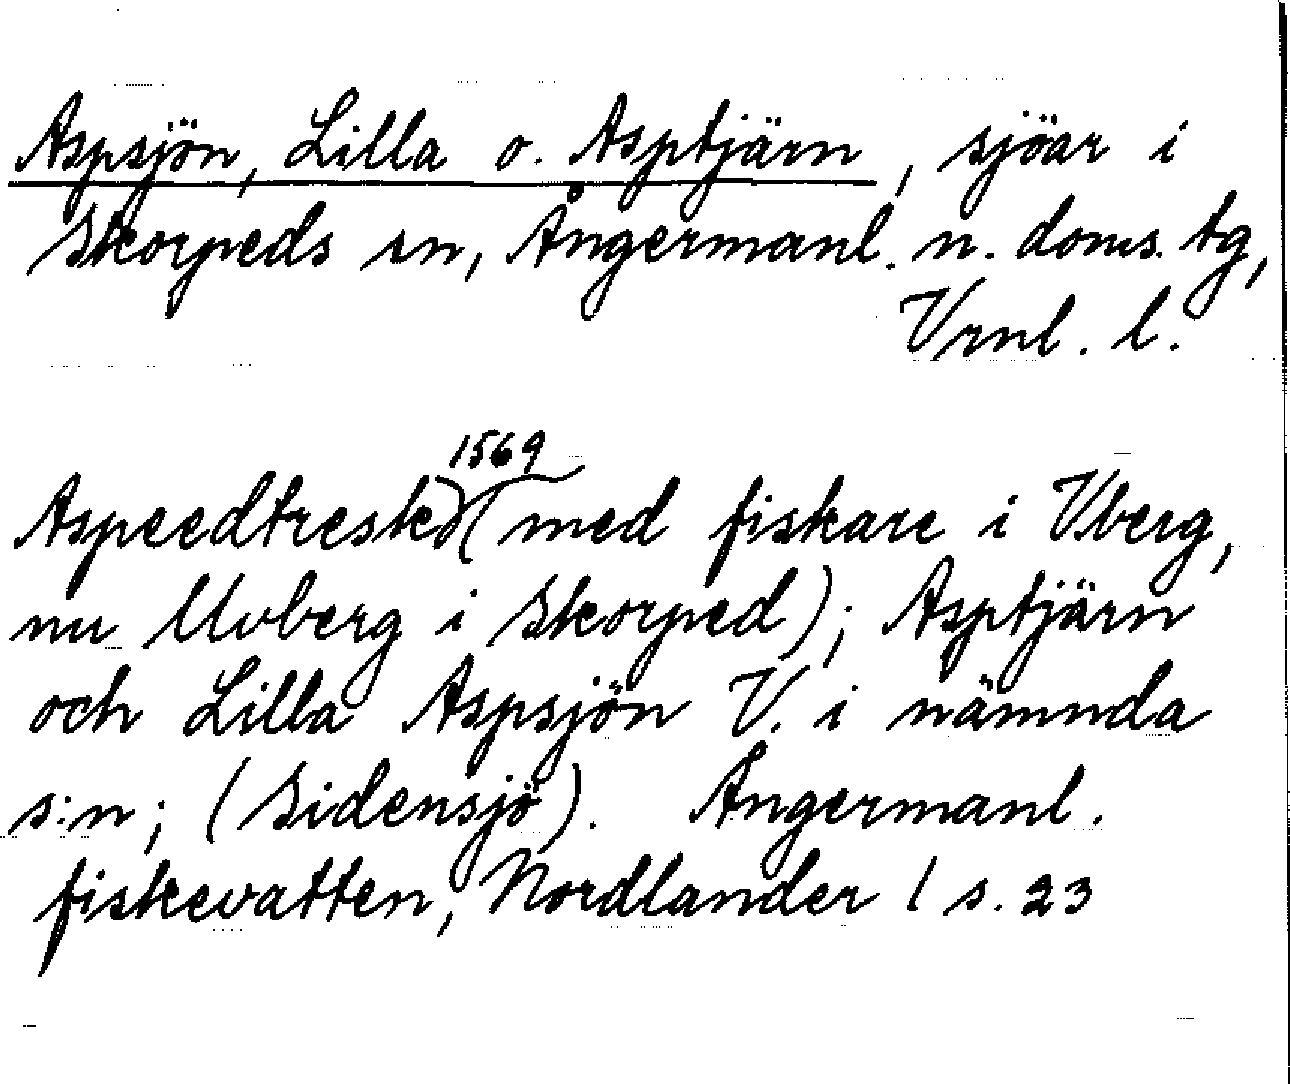 Aspsjön, Lilla o. Asptjärn, sjöar i
Skorpeds sn, Ångermanl. n. doms. tg,
Vrnl. l.
1569
Aspeedtresk (med fiskare i Vberg,
nu Uvberg i Skorped); Asptjärn
och Lilla Aspsjön V. i nämnda
s:n; (Sidensjö). Ångermanl.
fiskevatten, Nordlander 1 s. 23